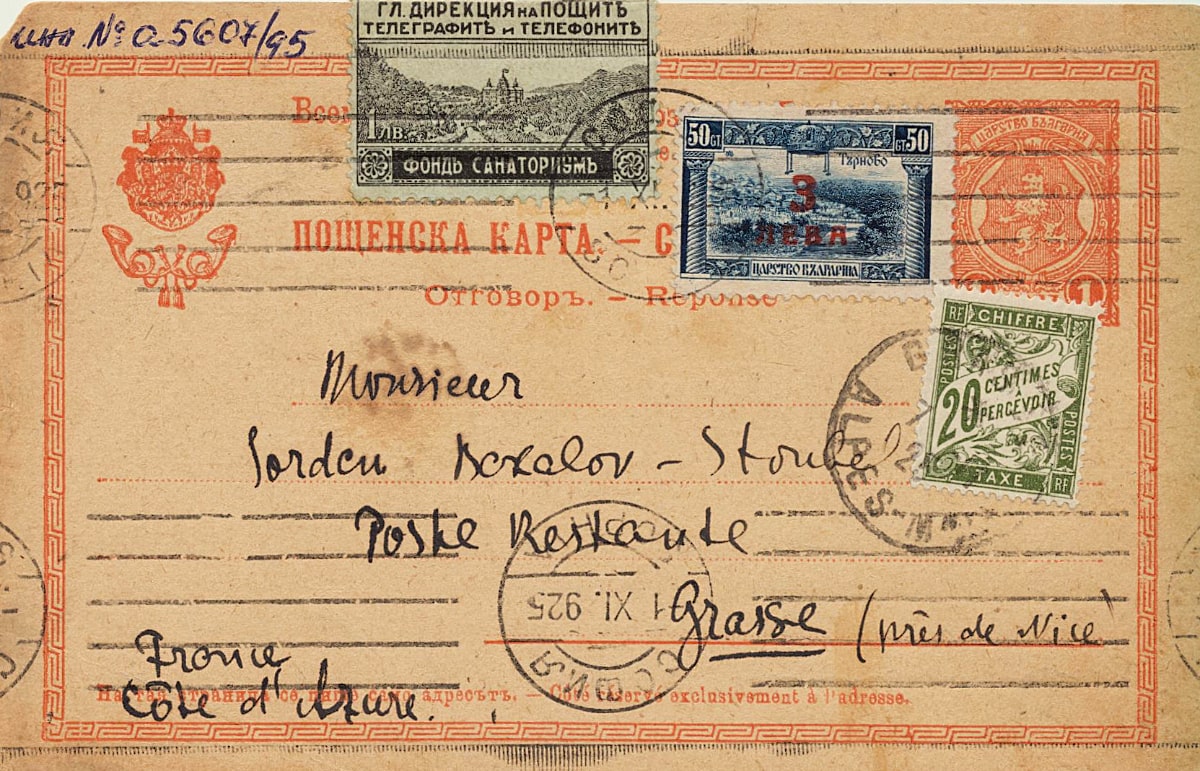 инв. № а 5607/95
ГЛ. ДИРЕКЦИЯ НА ПОЩИТѢ
ТЕЛЕГРАФИТѢ И ТЕЛЕФОНИТѢ
1 ЛВ.
ФОНДЪ САНАТОРИУМЪ
50 СТ.
СТ. 50
Търново
3
ЛЕВА
ЦАРСТВО БЪЛГАРИЯ
ЦАРСТВО БЪЛГАРИЯ
1
ПОЩЕНСКА КАРТА. –
Отговоръ. – Réponse
RF CHIFFRE RF
POSTES
20 CENTIMES
À
PERCEVOIR
POSTES
TAXE RF
ALPES-M
Monsieur
Poste Restante
СОФИЯ
1 XI. 925
Grasse (près de Nice
France
Côte d'Azure.
На тая страница се пише само адресътъ. – Côté réservé exclusivement à l'adresse.